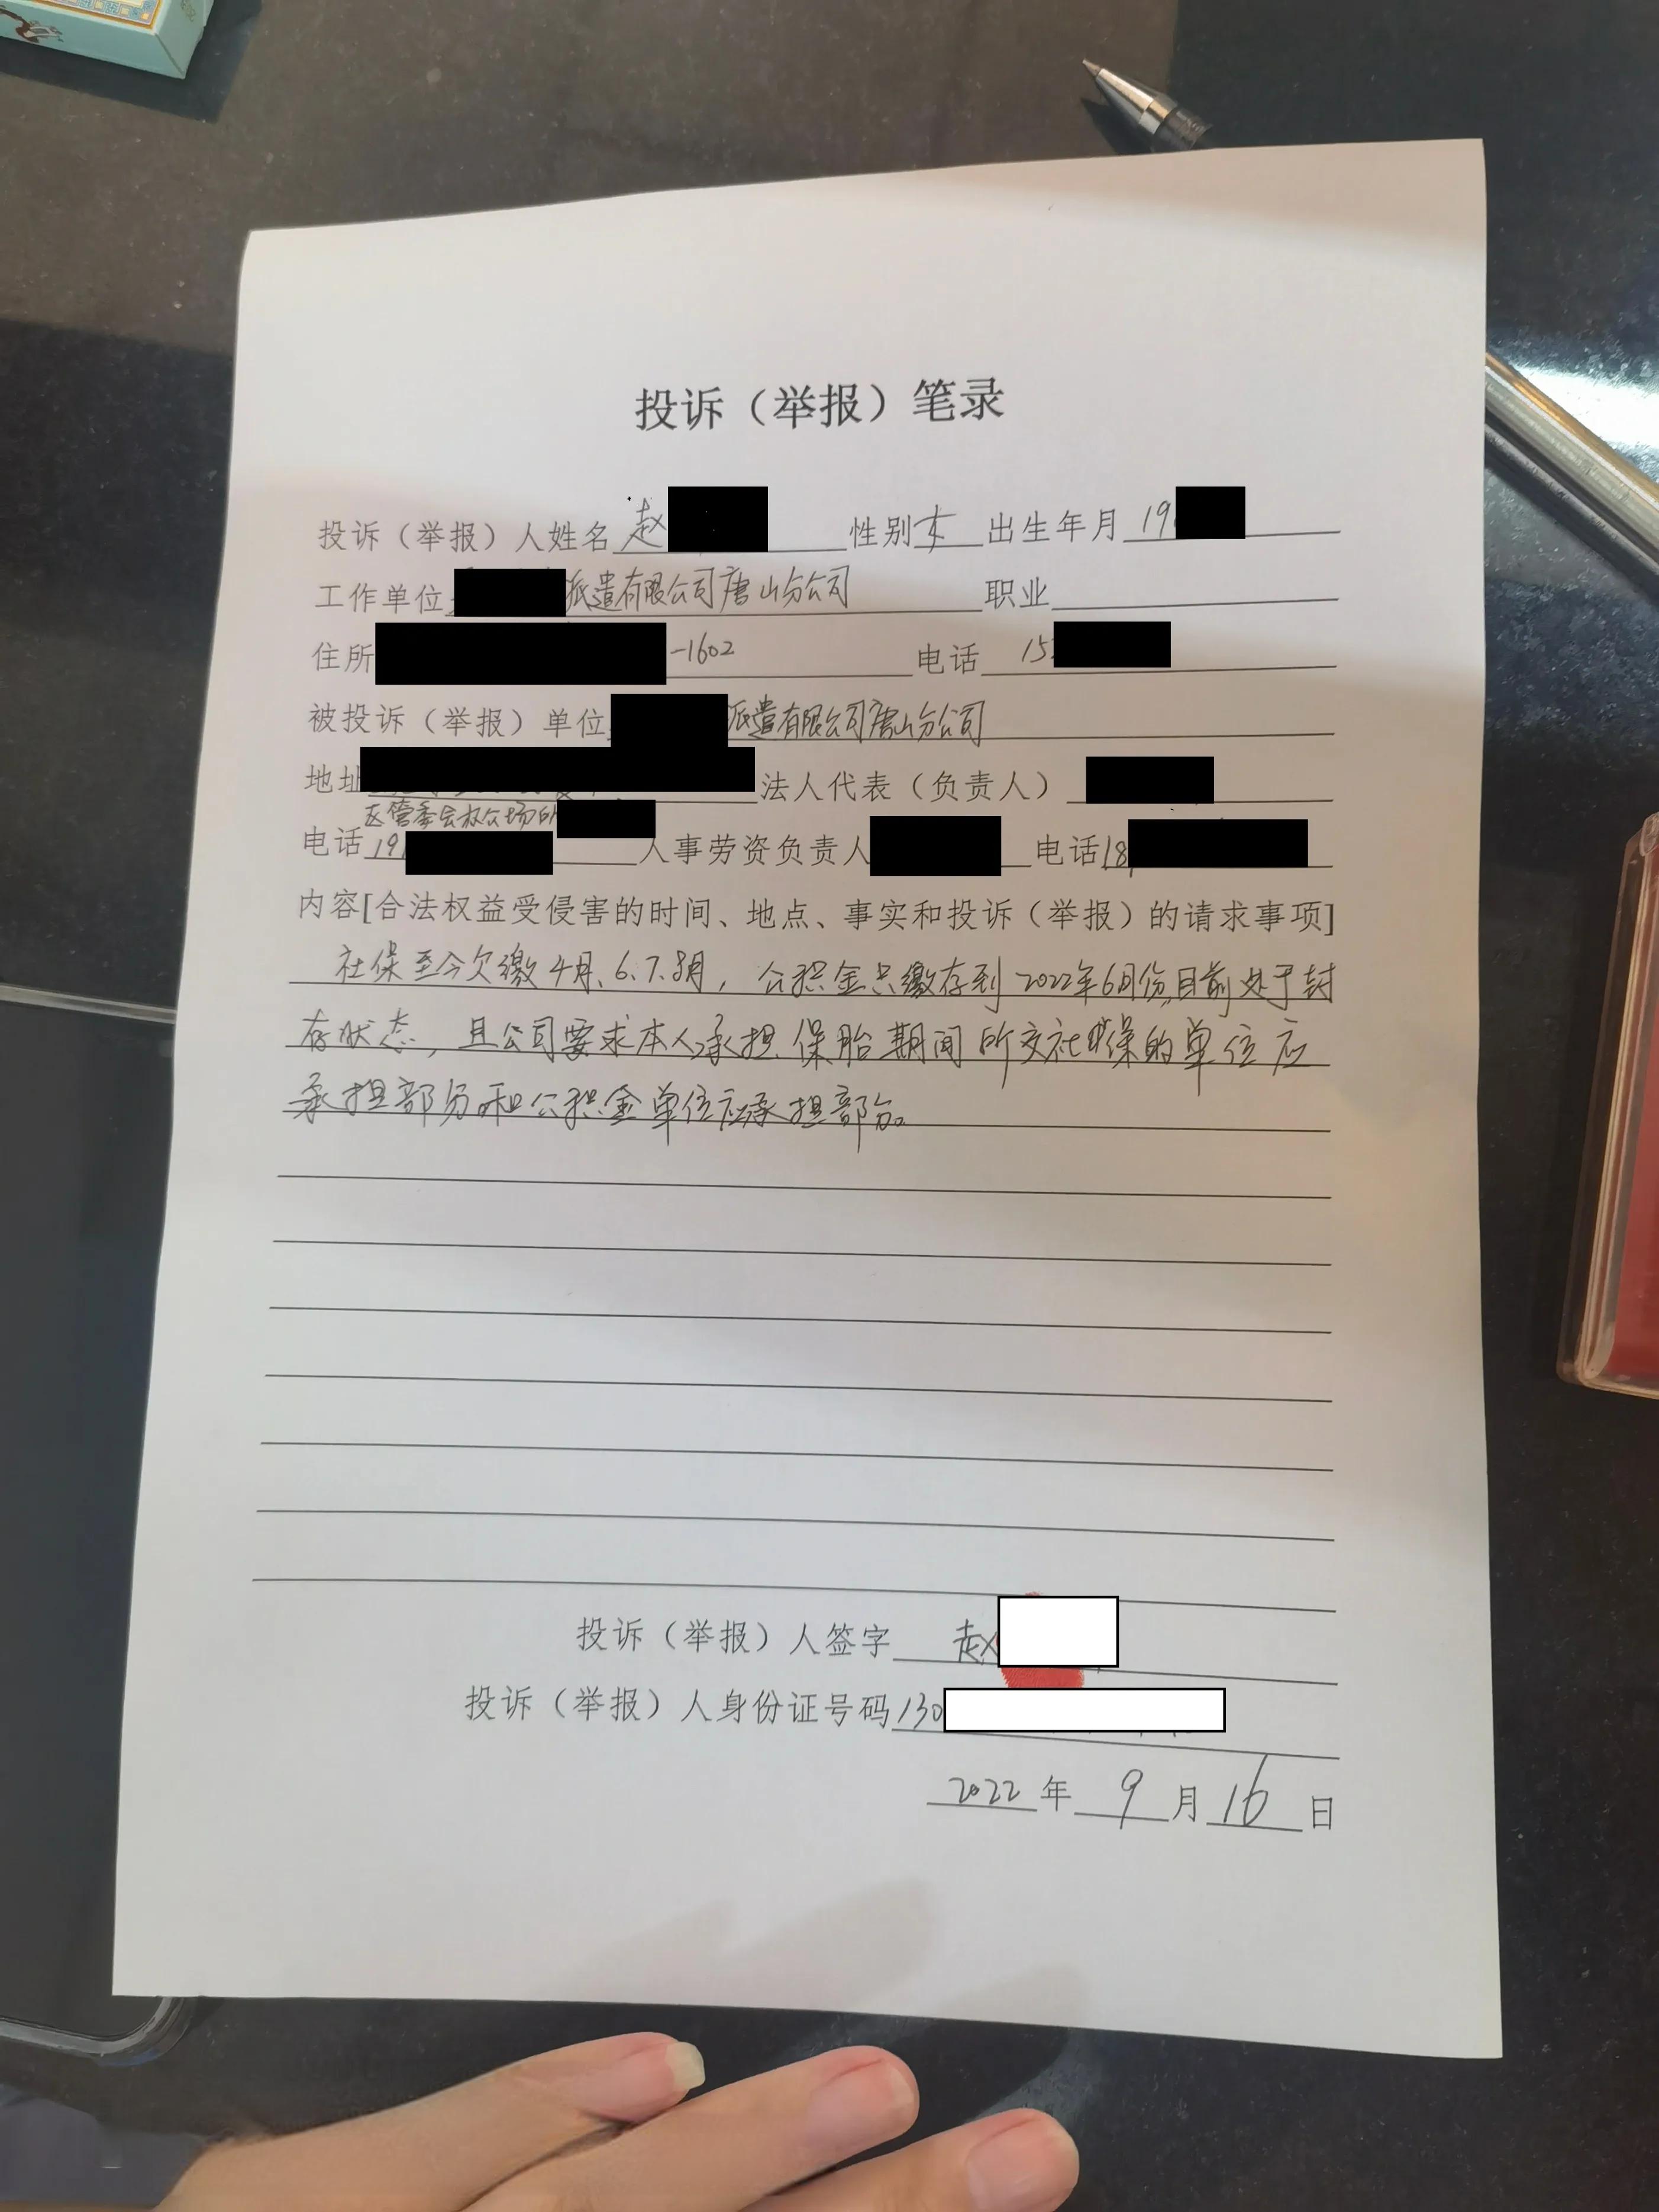 投诉（举报）笔录
投诉（举报）人姓名 赵 性别 女 出生年月 19
工作单位 派遣有限公司唐山分公司 职业
住所 -1602 电话 15
被投诉（举报）单位 派遣有限公司唐山分公司
地址 法人代表（负责人）
区管委会 场
电话 191 人事劳资负责人 电话 18
内容[合法权益受侵害的时间、地点、事实和投诉（举报）的请求事项]
社保至今欠缴4月、6.7.8月，公积金只缴存到2022年6月份,目前处于封
存状态，且公司要求本人承担保胎期间所交社保的单位应
承担部分和公积金单位应承担部分。
投诉（举报）人签字 赵
投诉（举报）人身份证号码 130
2022 年 9 月 16 日